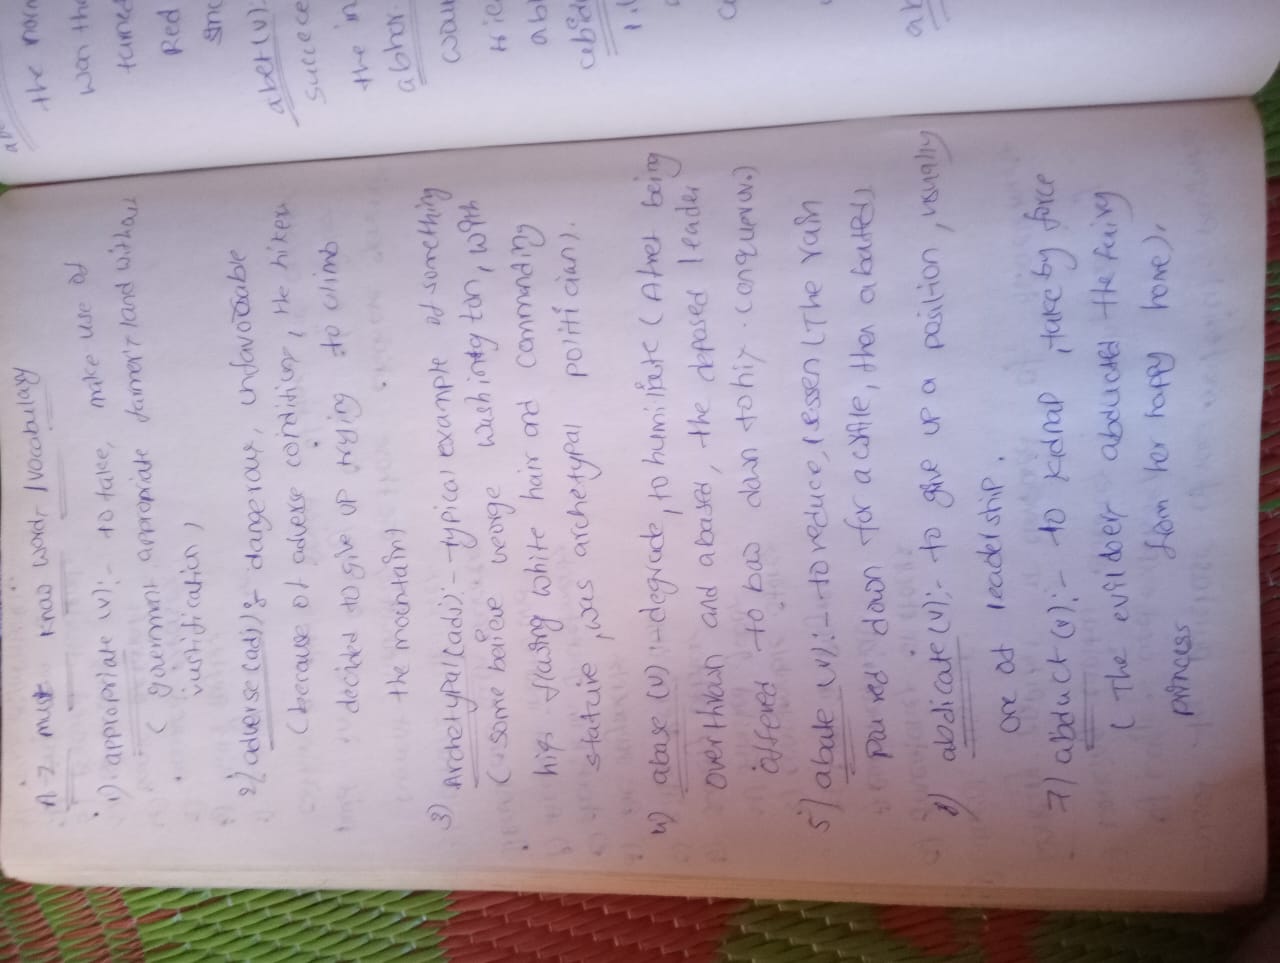 A-Z must know words / vocabulary
1) appropriate (v):- to take, make use of
( goverment appropriate farmer's land without
justification )
2) adverse (adj):- dangerous, unfavorable
( because of adverse conditions, the hikers
decided to give up trying to climb
the mountain)
3) Archetypal (adj):- typical example of something
( some believe george washington, with
his flowing white hair and commanding
stature, was archetypal politician).
4) abase (v) :- degrade, to humiliate ( After being
overthrown and abased, the deposed leader
offered to bow down to his conqueror.)
5) abate (v):- to reduce, lessen ( The rain
poured down for a while, then abated)
6) abdicate (v):- to give up a position, usually
one of leadership.
7) abduct (v):- to kidnap, take by force
( The evildoer abducted the fairy
princess from her happy home).
the
was the
turned
Red
abet (v):
succee
the in
abhor
abl
ab